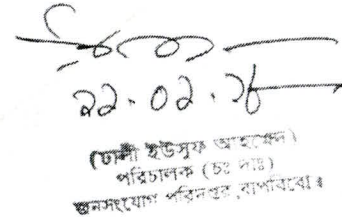 ২২.০২.
(ঢালী ইউসুফ আহমেদ)
পরিচালক (চঃ দাঃ)
জনসংযোগ পরিদপ্তর, বাপবিবো।